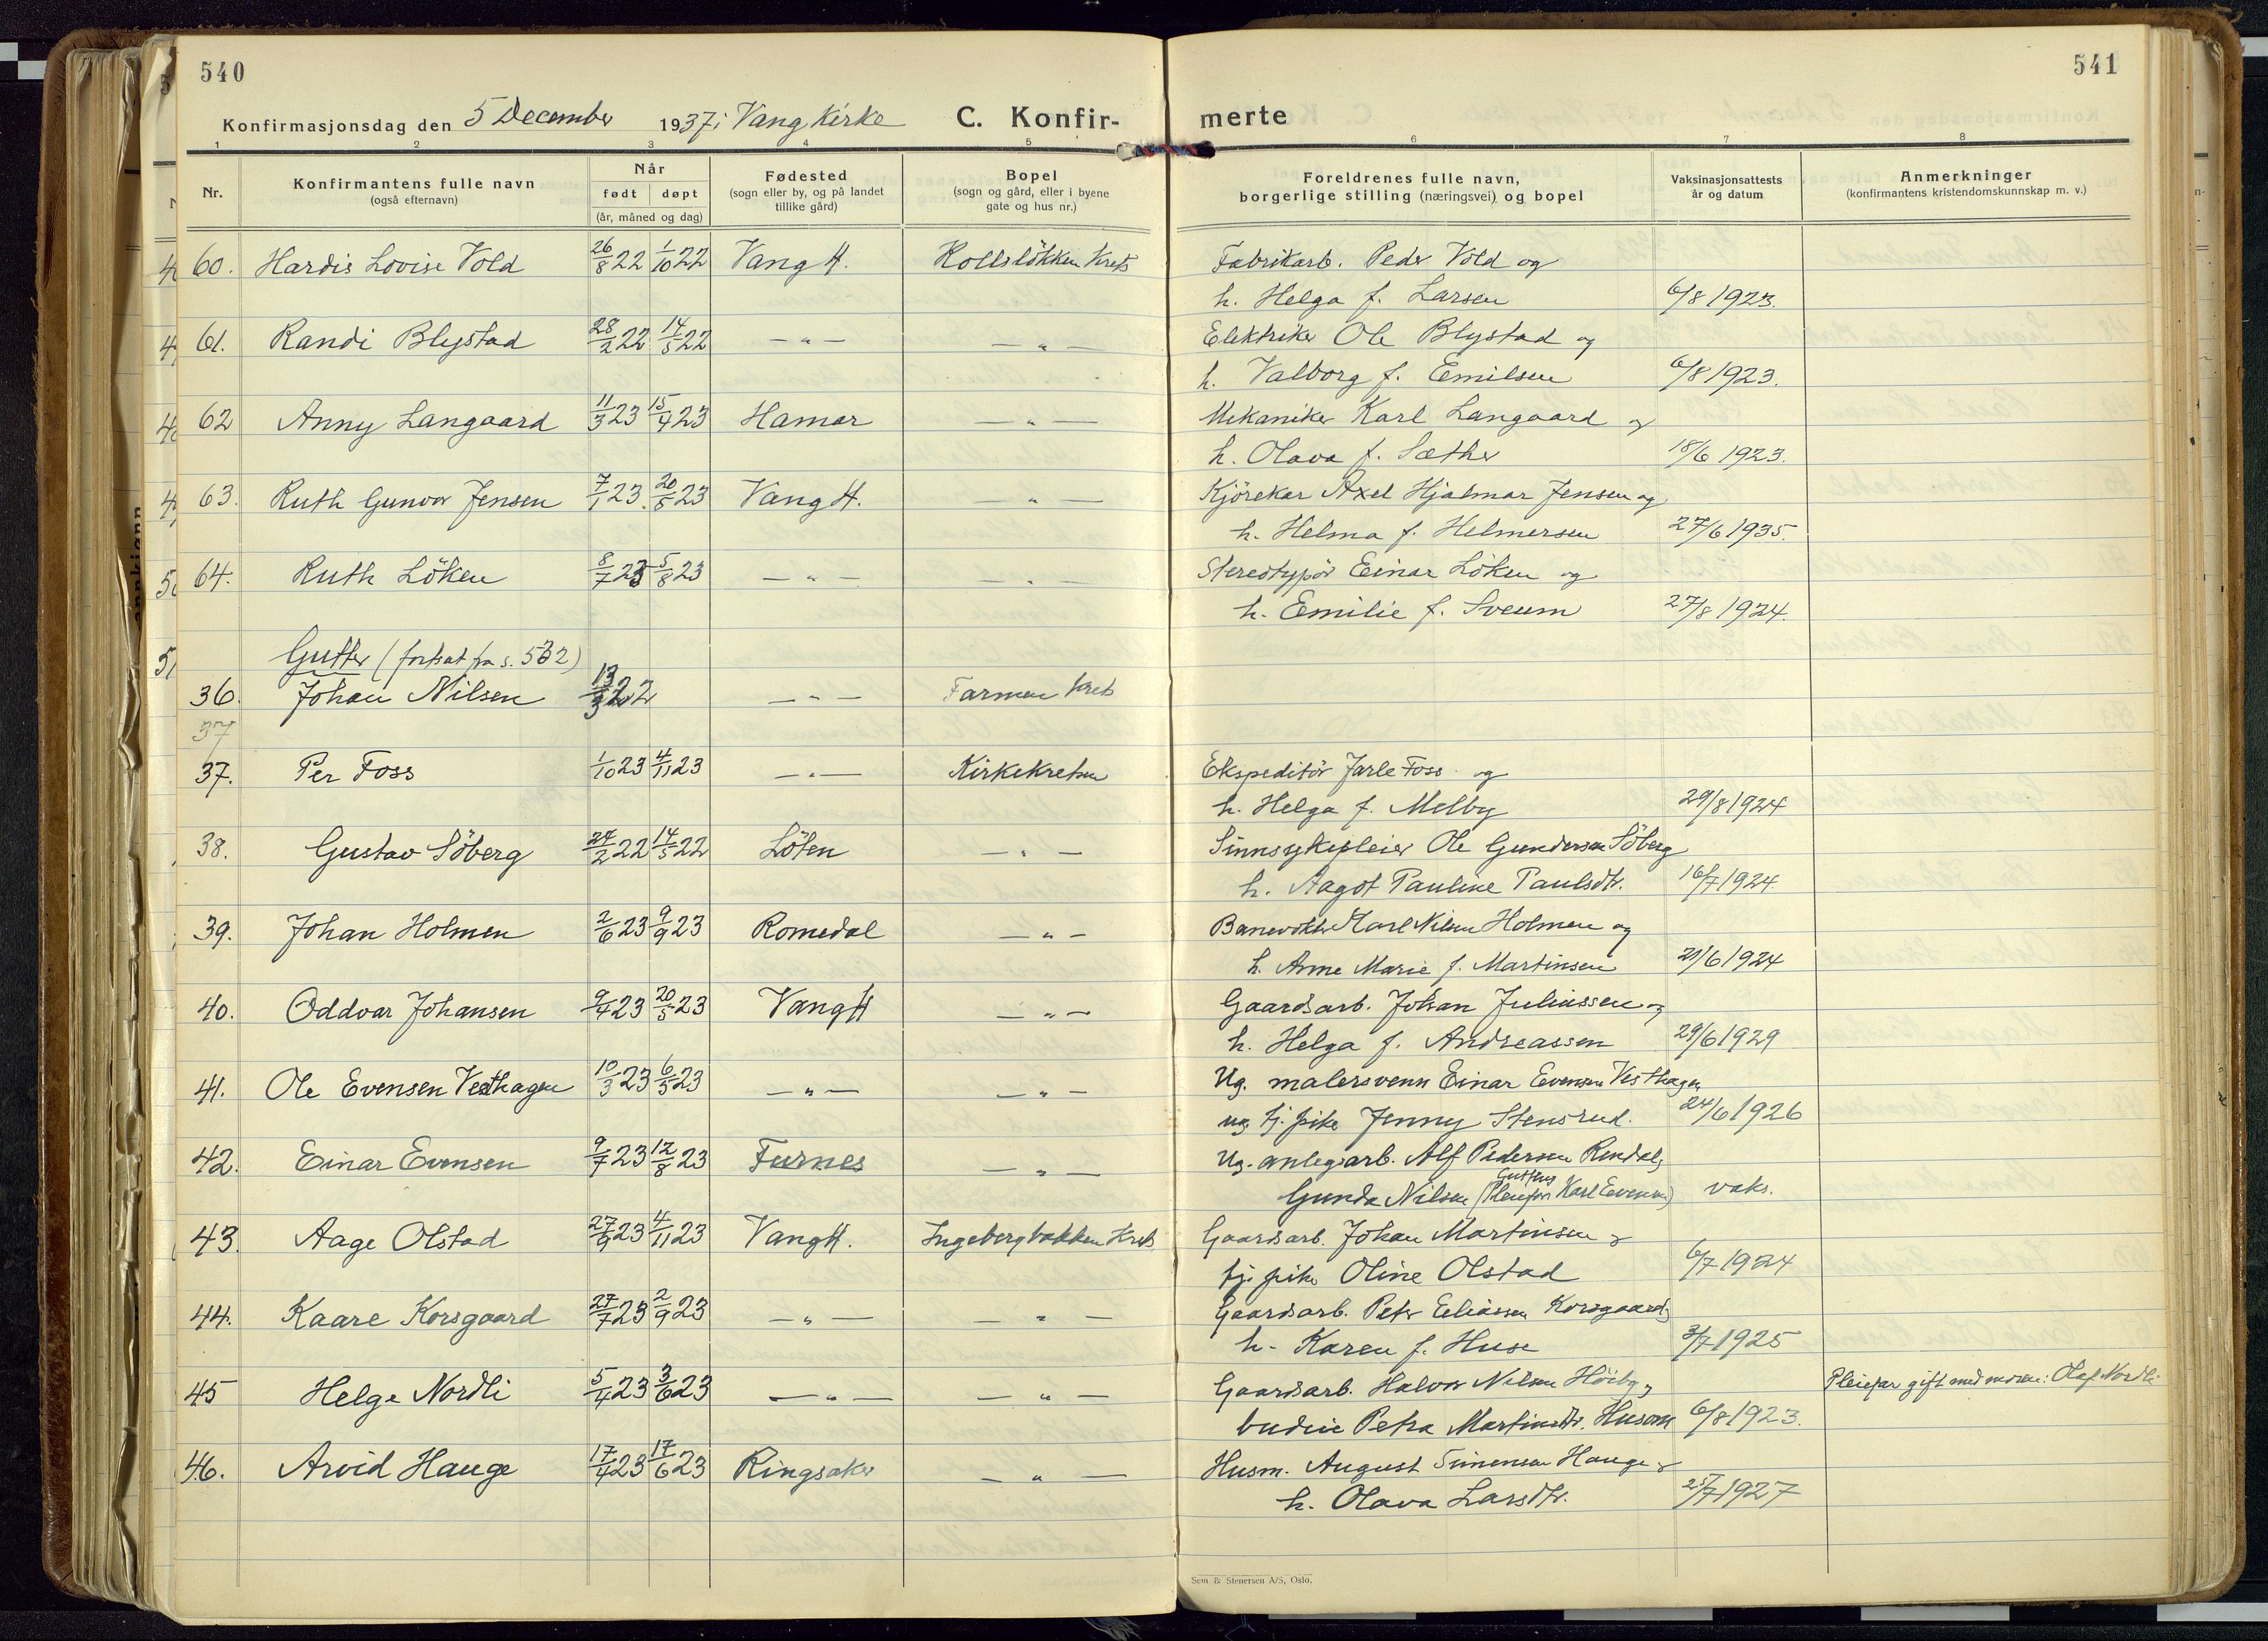 540
541
Konfirmasjonsdag den 5 December 1937 i Vang Kirke C. Konfir-
merte
1 2 3 4 5 6 7 8
Nr. Konfirmantens fulle navn (også efternavn) Når født døpt (år, måned og dag) Fødested (sogn eller by, og på landet tillike gård) Bopel (sogn og gård, eller i byene gate og hus nr.) Foreldrenes fulle navn, borgerlige stilling (næringsvei) og bopel Vaksinasjonsattests år og datum Anmerkninger (konfirmantens kristendomskunnskap m. v.)
60. Hardis Lovise Vold 26/8 22 1/10 22 Vang H. Kollsløkken Krets Fabrikarb. Peder Vold og
h. Helga f. Larsen 6/8 1923.
61. Randi Blystad 28/2 22 14/5 22 — " — — " — Elektriker Ole Blystad og
h. Valborg f. Emilsen 6/8 1923.
62 Anny Langaard 11/3 23 15/4 23 Hamar — " — Mekaniker Karl Langaard og
h. Olava f. Sæther 18/6 1923.
63. Ruth Gunvor Jensen 7/1 23. 20/5 23 Vang H. — " — Kjörekar Axel Hjalmar Jensen og
h. Helma f. Helmersen 27/6 1935.
64. Ruth Löken 8/7 23 5/8 23 — " — — " — Stereotypör Einar Löken og
h. Emilie f. Sveum 27/8 1924.
Gutter (fortsat fra s. 532)
36. Johan Nilsen 13/3 22 — " — Farmen Krets
37
37. Per Foss 1/10 23 4/11 23 — " — Kirkekretsen Ekspeditör Jarle Foss og
h. Helga f. Melby 29/8 1924
38. Gustav Söberg 24/2 22 14/5 22 Löten — " — Sinnsykepleier Ole Gundersen Söberg
h. Aagot Pauline Paulsdtr. 16/7 1924.
39. Johan Holmen 2/6 23 9/9 23 Romedal — " — Banevokter Karl Nilsen Holmen og
h. Anne Marie f. Martinsen 29/6 1924
40. Oddvar Johansen 9/4 23 20/5 23 Vang H — " — Gaardsarb. Johan Juliussen og
h. Helga f. Andreassen 29/6 1929
41. Ole Evensen Vesthagen 10/3 23 6/5 23 — " — — " — Ug. malersvenn Einar Evensen Vesthagen
ug tj. pike Jenny Stensrud. 24/6 1926
42. Einar Evensen 9/7 23 12/8 23 Furnes — " — Ug. anlegsarb. Alf Pedersen Rendal,
Gunda Nilsen (Guttens Pleiefar Karl Evensen) vaks.
43. Aage Olstad 27/9 23 4/11 23 Vang H. Ingebergbakken Krets Gaardsarb. Johan Martinsen &
tj. pike Oline Olstad 6/7 1924
44. Kaare Korsgaard 27/7 23 2/9 23 — " — — " — Gaardsarb. Peter Eliassen Korsgaard,
h. Karen f. Huse 3/7 1925
45 Helge Nordli 5/4 23 3/6 23 — " — — " — Gaardsarb. Halvor Nilsen Höiby, Pleiefar gift med moren: Olaf Nordli
budeie Petra Martinsdtr. Husom 6/8 1923.
46. Arvid Hauge 17/4 23 17/6 23 Ringsaker — " — Husm. August Simensen Hauge &
h. Olava Larsdtr. 25/7 1927
Sem & Stenersen A/S, Oslo.